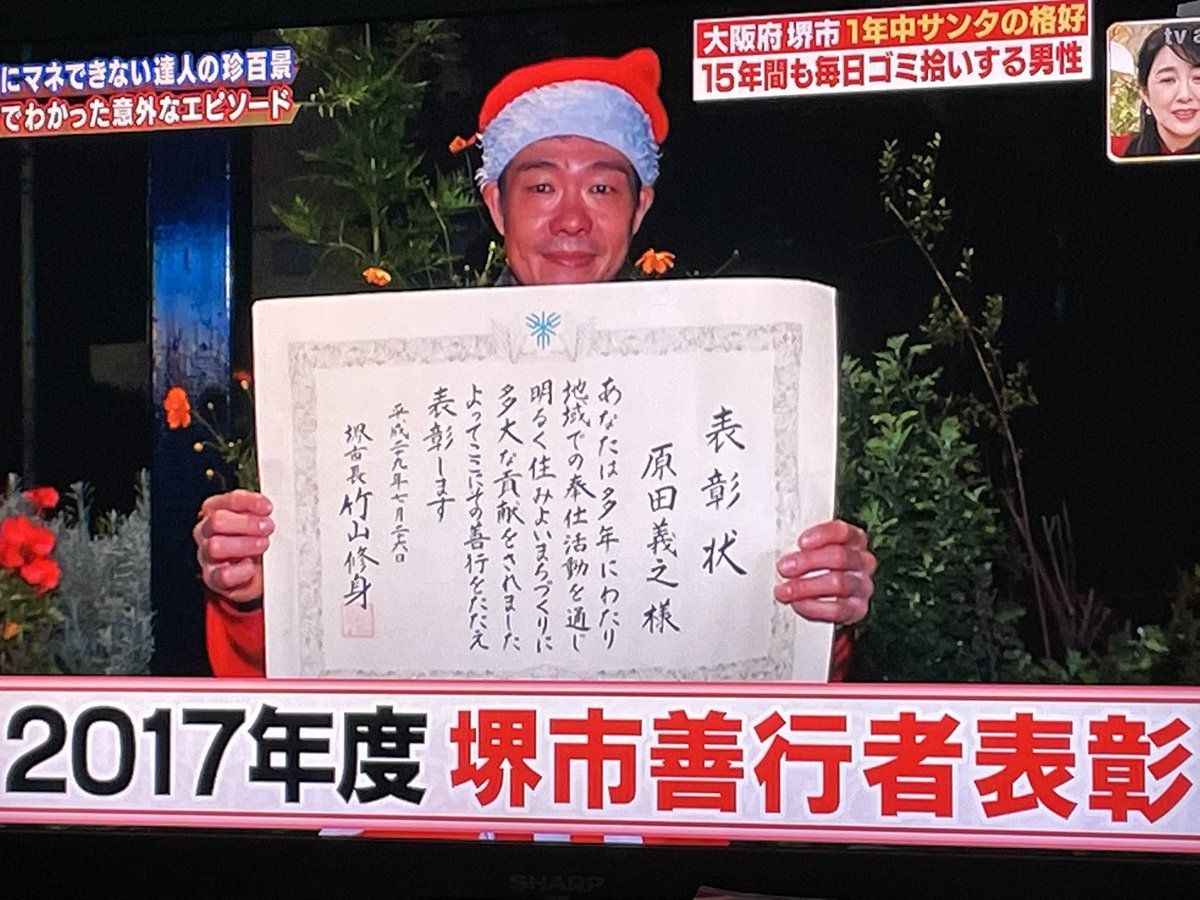 にマネできない達人の珍百景
でわかった意外なエピソード
大阪府 堺市 1年中サンタの格好
15年間も毎日ゴミ拾いする男性
tv a
表彰状
原田義之様
あなたは多年にわたり
地域での奉仕活動を通じ
明るく住みよいまちづくりに
多大な貢献をされました
よってここにその善行をたたえ
表彰します
平成二九年七月二六日
堺市長 竹山修身
2017年度 堺市善行者表彰
SHARP